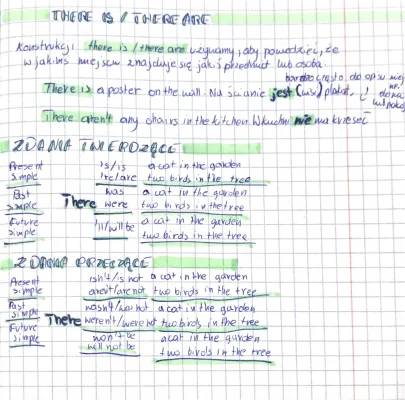 THERE IS / THERE ARE
Konstrukcji there is / there are używamy, aby powiedzieć, że
w jakimś miejscu znajduje się jakiś przedmiot lub osoba.
bardzo często, do opisu miejsc
np.
There is a poster on the wall. Na ścianie jest (wisi) plakat.
There aren't any chairs in the kitchen. W kuchni nie ma krzeseł
ZDANIA TWIERDZĄCE
Present 's/is a cat in the garden
simple 're/are two birds in the tree
Past was a cat in the garden
simple There were two birds in the tree
Future 'll/will be a cat in the garden
simple two birds in the tree
ZDANIA PRZECZĄCE
Present isn't/is not a cat in the garden
simple aren't/are not two birds in the tree
Past wasn't/was not a cat in the garden
simple There weren't/were not two birds in the tree
Future won't be a cat in the garden
simple will not be two birds in the tree